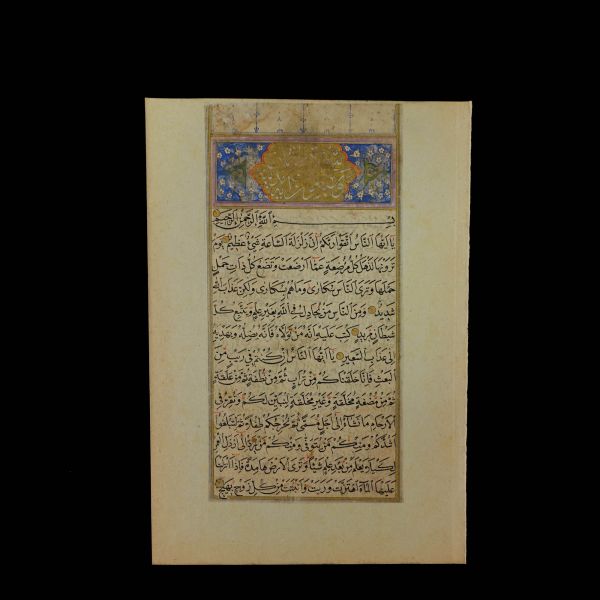 بِسْمِ اللَّهِ الرَّحْمٰنِ الرَّحِيمِ
يَا اَيُّهَا النَّاسُ اتَّقُوا رَبَّكُمْ اِنَّ زَلْزَلَةَ السَّاعَةِ شَيْءٌ عَظِيمٌ يَوْمَ
تَرَوْنَهَا تَذْهَلُ كُلُّ مُرْضِعَةٍ عَمَّا اَرْضَعَتْ وَتَضَعُ كُلُّ ذَاتِ حَمْلٍ
حَمْلَهَا وَتَرَى النَّاسَ سُكَارٰى وَمَا هُمْ بِسُكَارٰى وَلٰكِنَّ عَذَابَ اللَّهِ
شَدِيدٌ وَمِنَ النَّاسِ مَنْ يُجَادِلُ فِي اللَّهِ بِغَيْرِ عِلْمٍ وَيَتَّبِعُ كُلَّ
شَيْطَانٍ مَرِيدٍ كُتِبَ عَلَيْهِ اَنَّهُ مَنْ تَوَلَّاهُ فَاَنَّهُ يُضِلُّهُ وَيَهْدِيهِ
اِلٰى عَذَابِ السَّعِيرِ يَا اَيُّهَا النَّاسُ اِنْ كُنْتُمْ فِي رَيْبٍ مِنَ
الْبَعْثِ فَاِنَّا خَلَقْنَاكُمْ مِنْ تُرَابٍ ثُمَّ مِنْ نُطْفَةٍ ثُمَّ مِنْ عَلَقَةٍ
ثُمَّ مِنْ مُضْغَةٍ مُخَلَّقَةٍ وَغَيْرِ مُخَلَّقَةٍ لِنُبَيِّنَ لَكُمْ وَنُقِرُّ فِي
الْاَرْحَامِ مَا نَشَاءُ اِلٰى اَجَلٍ مُسَمًّى ثُمَّ نُخْرِجُكُمْ طِفْلًا ثُمَّ لِتَبْلُغُوا
اَشُدَّكُمْ وَمِنْكُمْ مَنْ يُتَوَفّٰى وَمِنْكُمْ مَنْ يُرَدُّ اِلٰى اَرْذَلِ الْعُمُرِ
لِكَيْلَا يَعْلَمَ مِنْ بَعْدِ عِلْمٍ شَيْئًا وَتَرَى الْاَرْضَ هَامِدَةً فَاِذَا اَنْزَلْنَا
عَلَيْهَا الْمَاءَ اهْتَزَّتْ وَرَبَتْ وَاَنْبَتَتْ مِنْ كُلِّ زَوْجٍ بَهِيجٍ